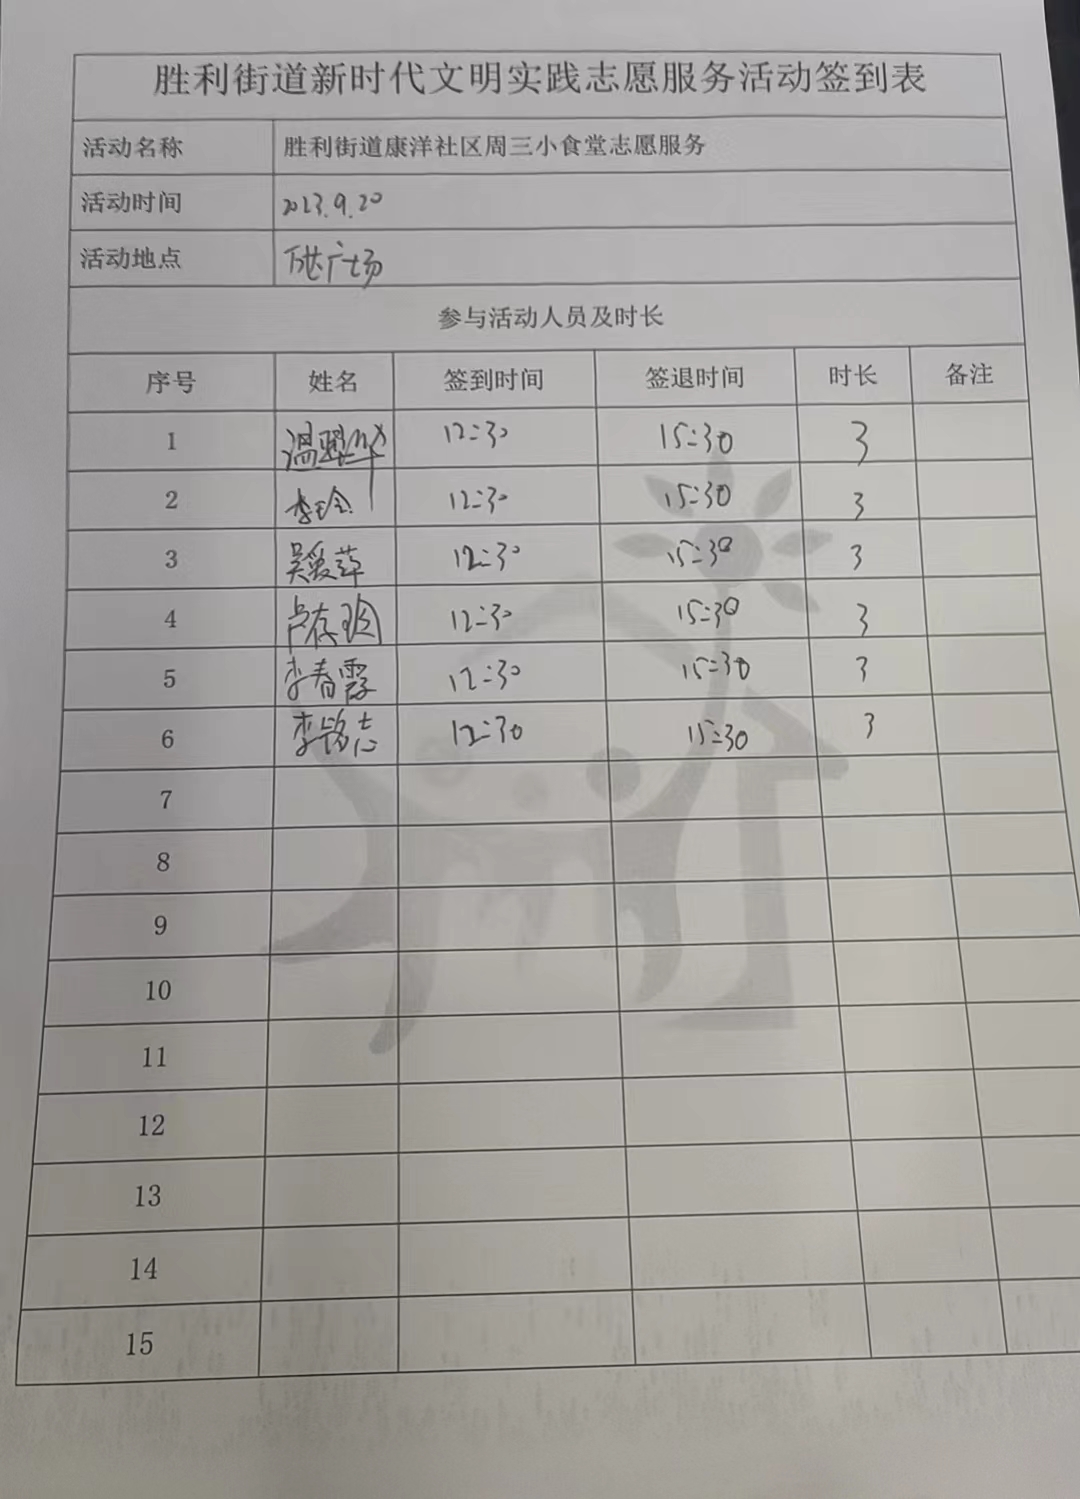 胜利街道新时代文明实践志愿服务活动签到表
活动名称 胜利街道康洋社区周三小食堂志愿服务
活动时间 2023.9.20
活动地点 万达广场
参与活动人员及时长
序号 姓名 签到时间 签退时间 时长 备注
1 温 华 12:30 15:30 3
2 李玲 12:30 15:30 3
3 吴爱萍 12:30 15:30 3
4 卢存玲 12:30 15:30 3
5 李春霞 12:30 15:30 3
6 李铭志 12:30 15:30 3
7
8
9
10
11
12
13
14
15